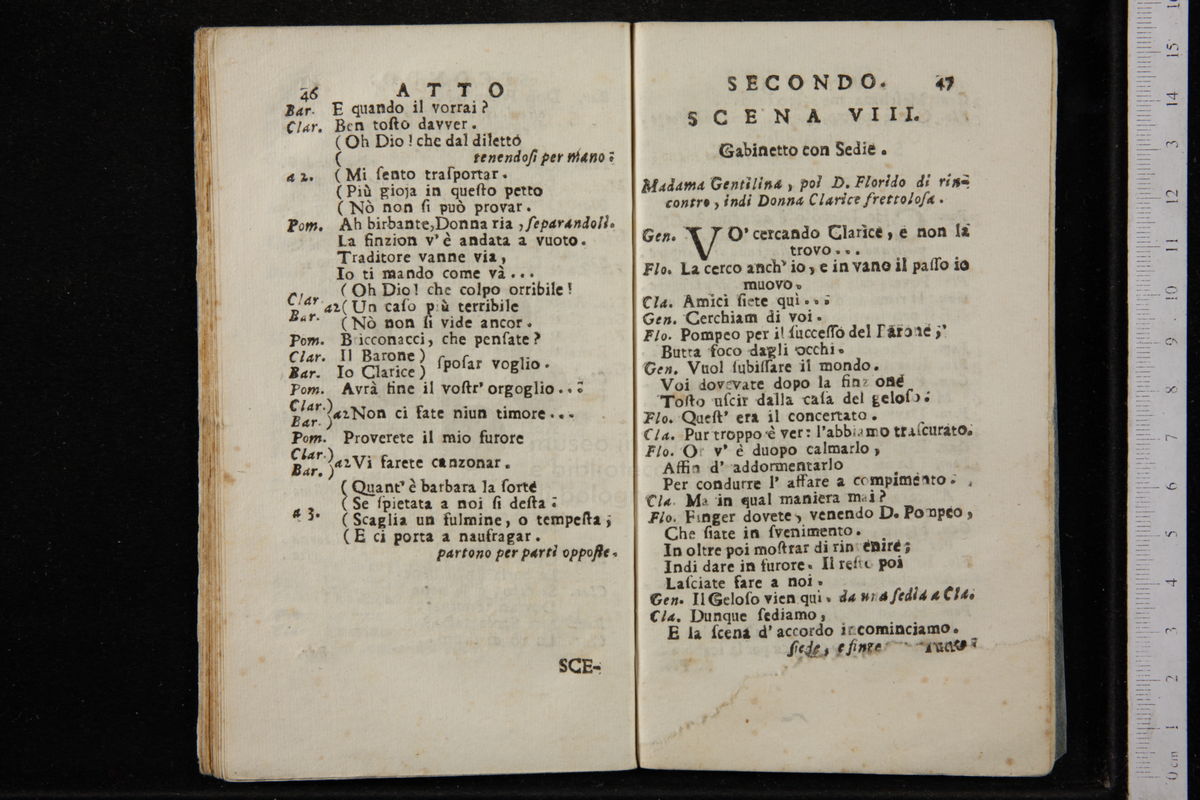 46 ATTO
Bar. E quando il vorrai?
Clar. Ben toſto davver.
(Oh Dio! che dal diletto
( tenendoſi per mano:
a 2. (Mi ſento traſportar.
(Più gioja in queſto petto
(Nò non ſi può provar.
Pom. Ah birbante, Donna ria, ſeparandoli.
La finzion v'è andata a vuoto.
Traditore vanne via,
Io ti mando come và...
(Oh Dio! che colpo orribile!
Clar. a2 (Un caſo più terribile
Bar. (Nò non ſi vide ancor.
Pom. Bricconacci, che penſate?
Clar. Il Barone) ſpoſar voglio.
Bar. Io Clarice)
Pom. Avrà fine il voſtr' orgoglio...
Clar.) a2 Non ci fate niun timore...
Bar.)
Pom. Proverete il mio furore
Clar.) a2 Vi farete canzonar.
Bar.)
(Quant' è barbara la ſorte
(Se ſpietata a noi ſi deſta:
a 3. (Scaglia un fulmine, o tempeſta;
(E ci porta a naufragar.
partono per parti oppoſte.
SCE-
SECONDO. 47
SCENA VIII.
Gabinetto con Sedie.
Madama Gentilina, poi D. Florido di rin-
contro, indi Donna Clarice frettoloſa.
Gen. VO' cercando Clarice, e non la
trovo...
Flo. La cerco anch' io, e in vano il paſſo io
muovo.
Cla. Amici ſiete quì...
Gen. Cerchiam di voi.
Flo. Pompeo per il ſucceſſo del Barone,
Butta foco dagli occhi.
Gen. Vuol ſubiſſare il mondo.
Voi dovevate dopo la finzione
Toſto uſcir dalla caſa del geloſo:
Flo. Queſt' era il concertato.
Cla. Pur troppo è ver: l'abbiamo traſcurato.
Flo. Or v' è duopo calmarlo,
Affin d' addormentarlo
Per condurre l' affare a compimento.
Cla. Ma in qual maniera mai?
Flo. Finger dovete, venendo D. Pompeo,
Che ſiate in ſvenimento.
In oltre poi moſtrar di rinvenire;
Indi dare in furore. Il reſto poi
Laſciate fare a noi.
Gen. Il Geloſo vien qui. da una ſedia a Cla.
Cla. Dunque ſediamo,
E la ſcena d' accordo incominciamo.
ſiede, e finge